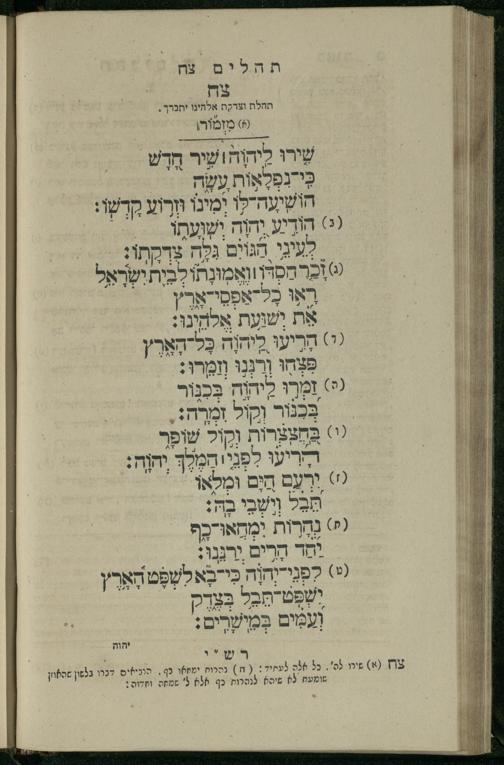 תהלים צח
צח
תהלת וצדקת אלהינו יתברך.
(א) מִזְמוֹר
שִׁירוּ לַיהוָה׀ שִׁיר חָדָשׁ
כִּי־נִפְלָאוֹת עָשָׂה
הוֹשִׁיעָה־לּוֹ יְמִינוֹ וּזְרוֹעַ קָדְשׁוֹ׃
(ב) הוֹדִיעַ יְהוָה יְשׁוּעָתוֹ
לְעֵינֵי הַגּוֹיִם גִּלָּה צִדְקָתוֹ׃
(ג) זָכַר חַסְדּוֹ׀ וֶאֱמוּנָתוֹ לְבֵית יִשְׂרָאֵל
רָאוּ כָל־אַפְסֵי־אָרֶץ
אֵת יְשׁוּעַת אֱלֹהֵינוּ׃
(ד) הָרִיעוּ לַיהוָה כָּל־הָאָרֶץ
פִּצְחוּ וְרַנְּנוּ וְזַמֵּרוּ׃
(ה) זַמְּרוּ לַיהוָה בְּכִנּוֹר
בְּכִנּוֹר וְקוֹל זִמְרָה׃
(ו) בַּחֲצֹצְרוֹת וְקוֹל שׁוֹפָר
הָרִיעוּ לִפְנֵי׀ הַמֶּלֶךְ יְהוָה׃
(ז) יִרְעַם הַיָּם וּמְלֹאוֹ
תֵּבֵל וְיֹשְׁבֵי בָהּ׃
(ח) נְהָרוֹת יִמְחֲאוּ־כָף
יַחַד הָרִים יְרַנֵּנוּ׃
(ט) לִפְנֵי־יְהוָה כִּי־בָא לִשְׁפֹּט הָאָרֶץ
יִשְׁפֹּט־תֵּבֵל בְּצֶדֶק
וְעַמִּים בְּמֵישָׁרִים׃
יהוה
רש״י
צח (א) שירו לה'. כל אלה לעתיד: (ח) נהרות ימחאו כף. הנביאים דברו בלשון שהאוזן
שומעת לא שיהא לנהרות כף אלא ל' שמחה וחדוה: